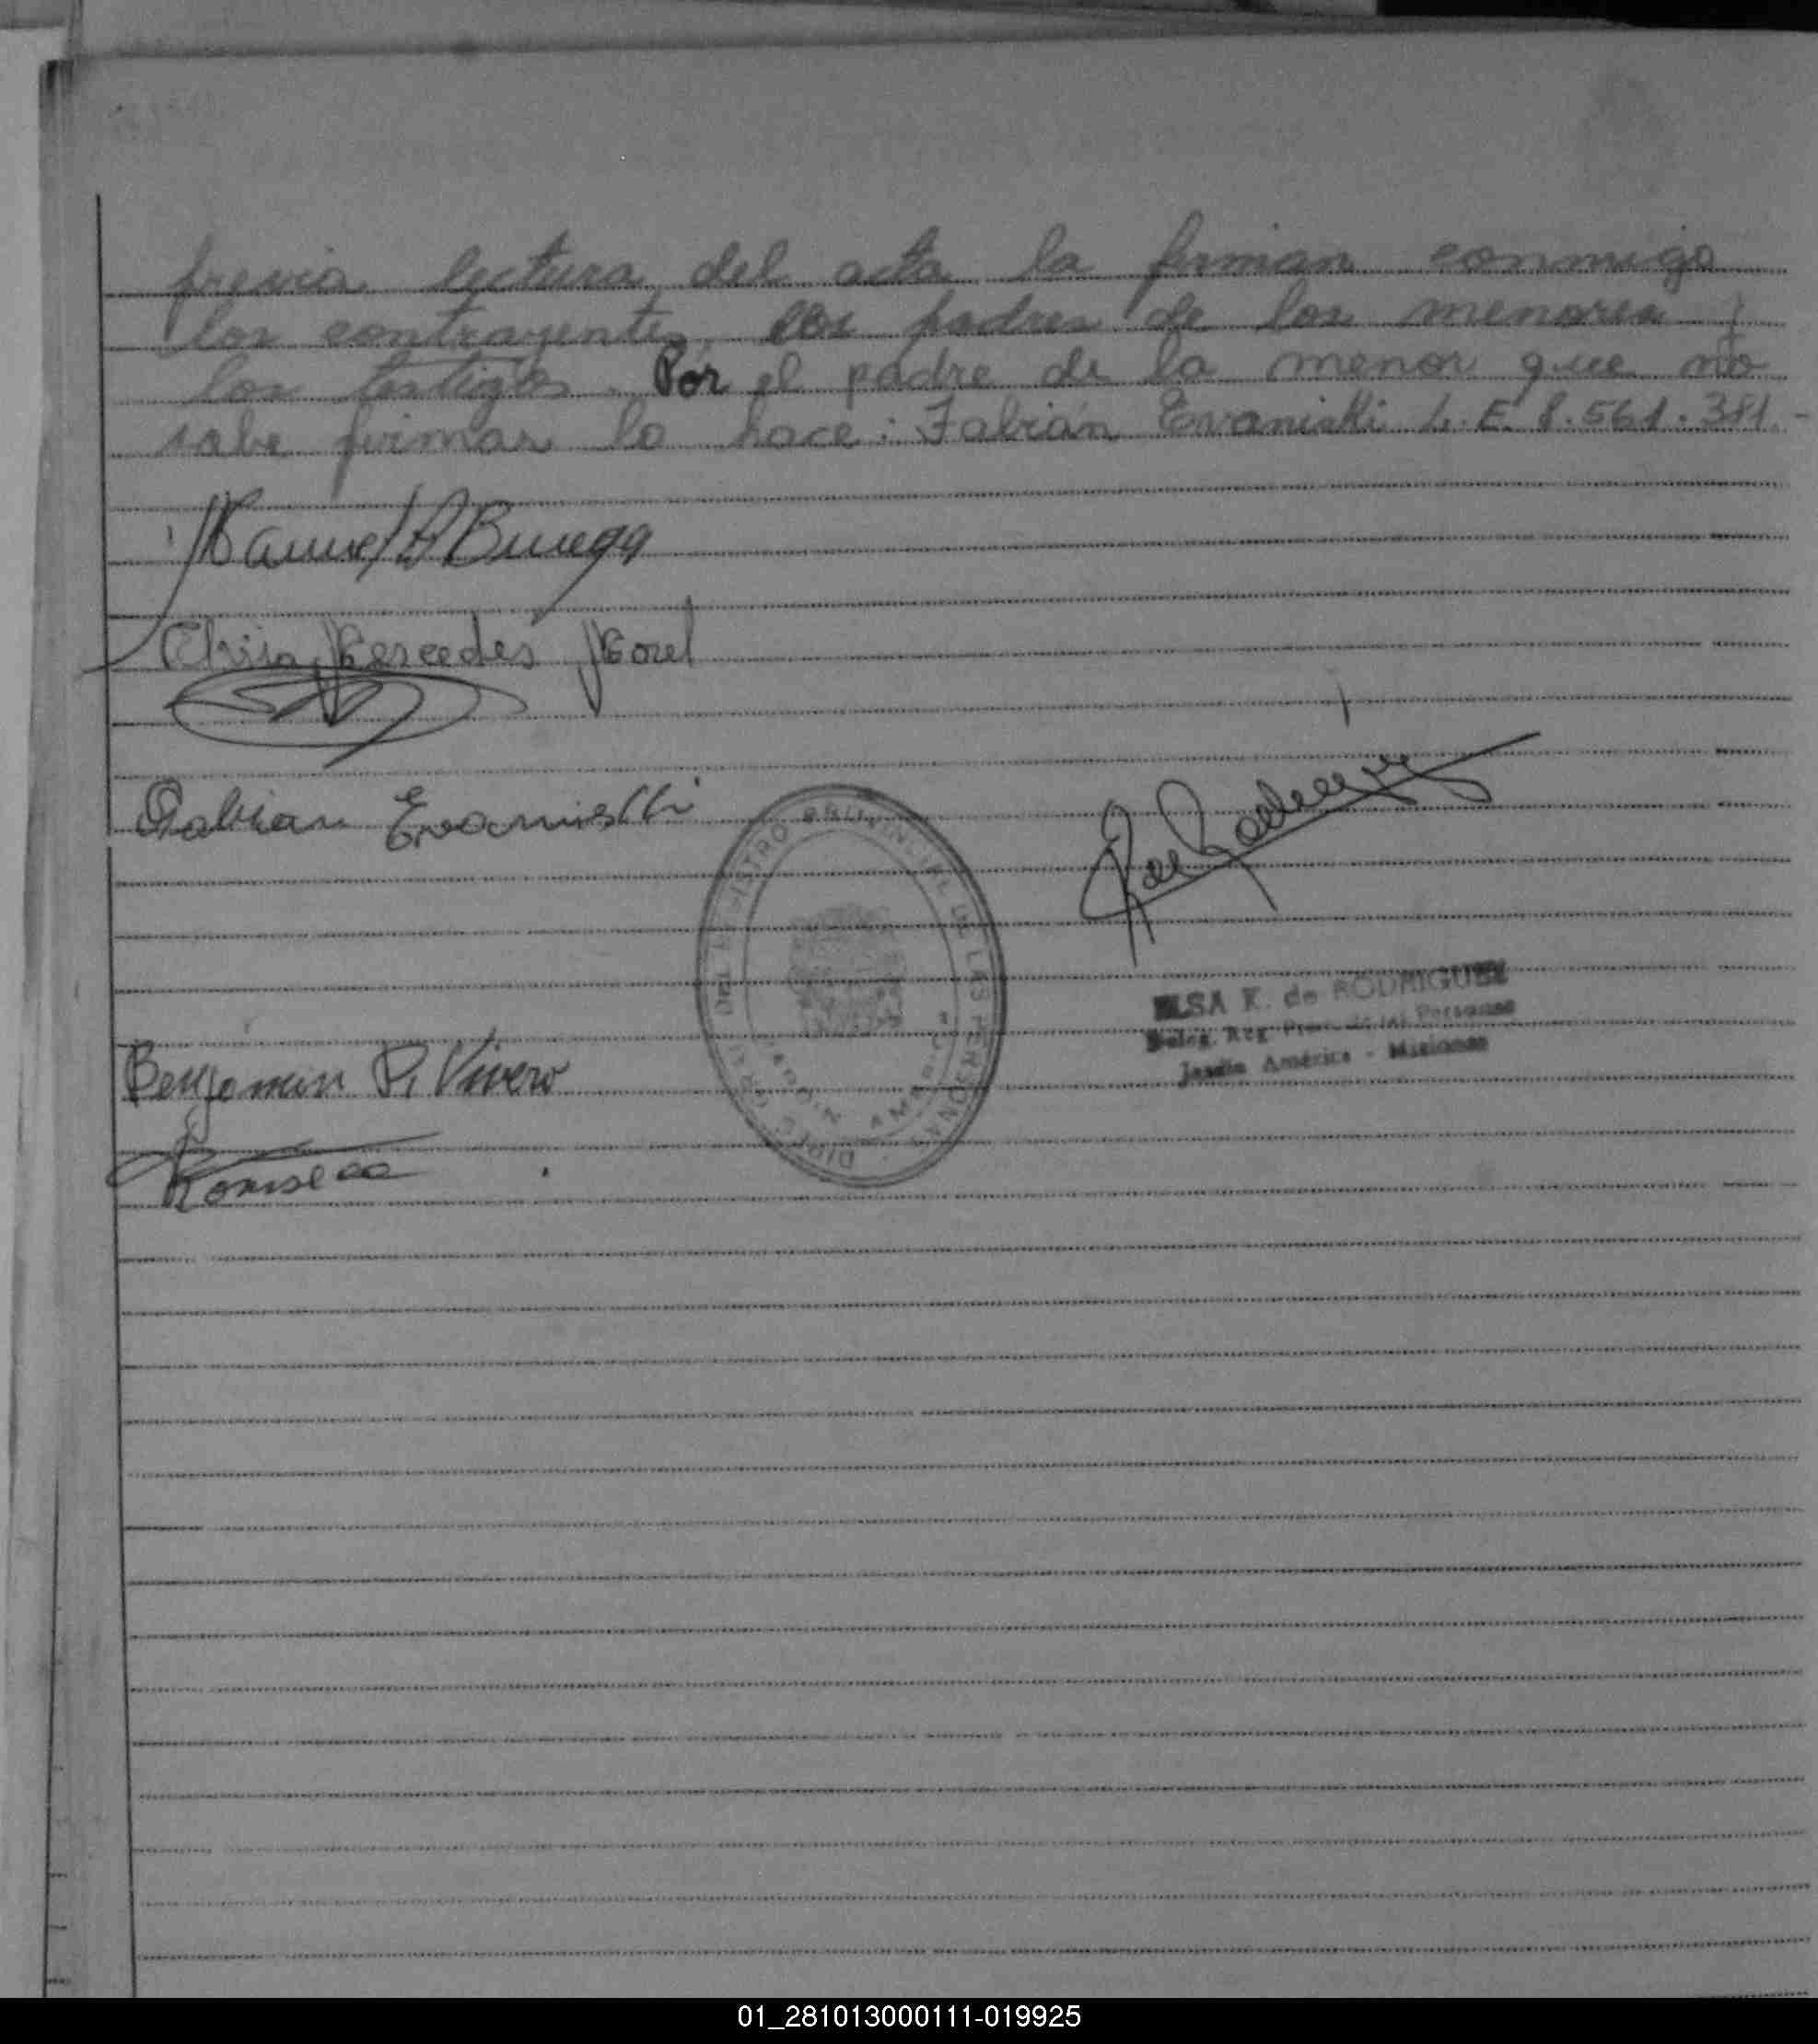 previa lectura del acta la firman conmigo
los contrayentes, los padres de los menores y
los testigos. Por el padre de la menor que no
sabe firmar lo hace: Fabián Evaniski L.E. 8.561.381.-
Elvira Mercedes Morel
Fabian Evaniski
REGISTRO PROVINCIAL DE LAS PERSONAS
JARDIN AMERICA
ELSA K. de RODRIGUEZ
Deleg. Reg. Prov. de las Personas
Jardín América - Misiones
Benjamin P. Vivero
01_281013000111-019925